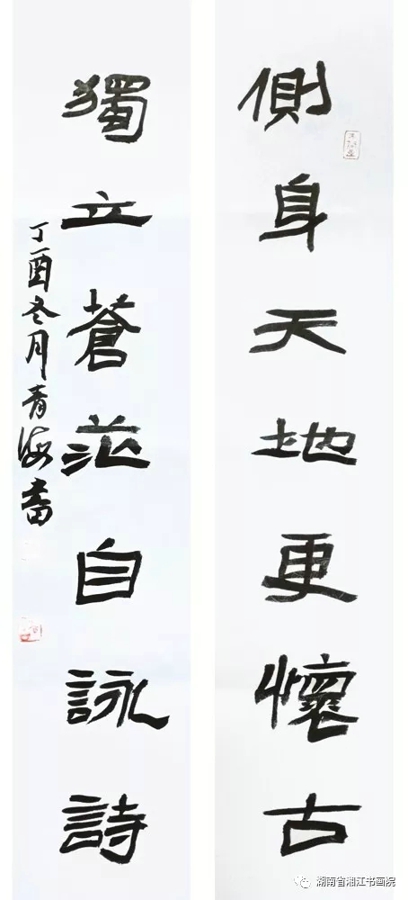 側身天地更懷古
獨立蒼茫自詠詩
丁酉冬月青海書
湖南省湘江书画院